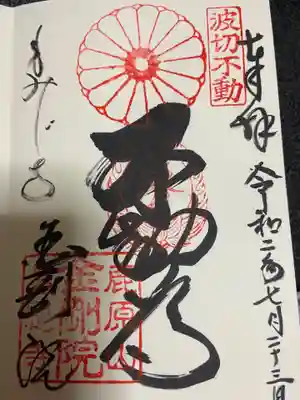 波切不動
奉拝 令和二年七月二十三日
不動尊
もみじ寺
金剛院
鹿原山
金剛院